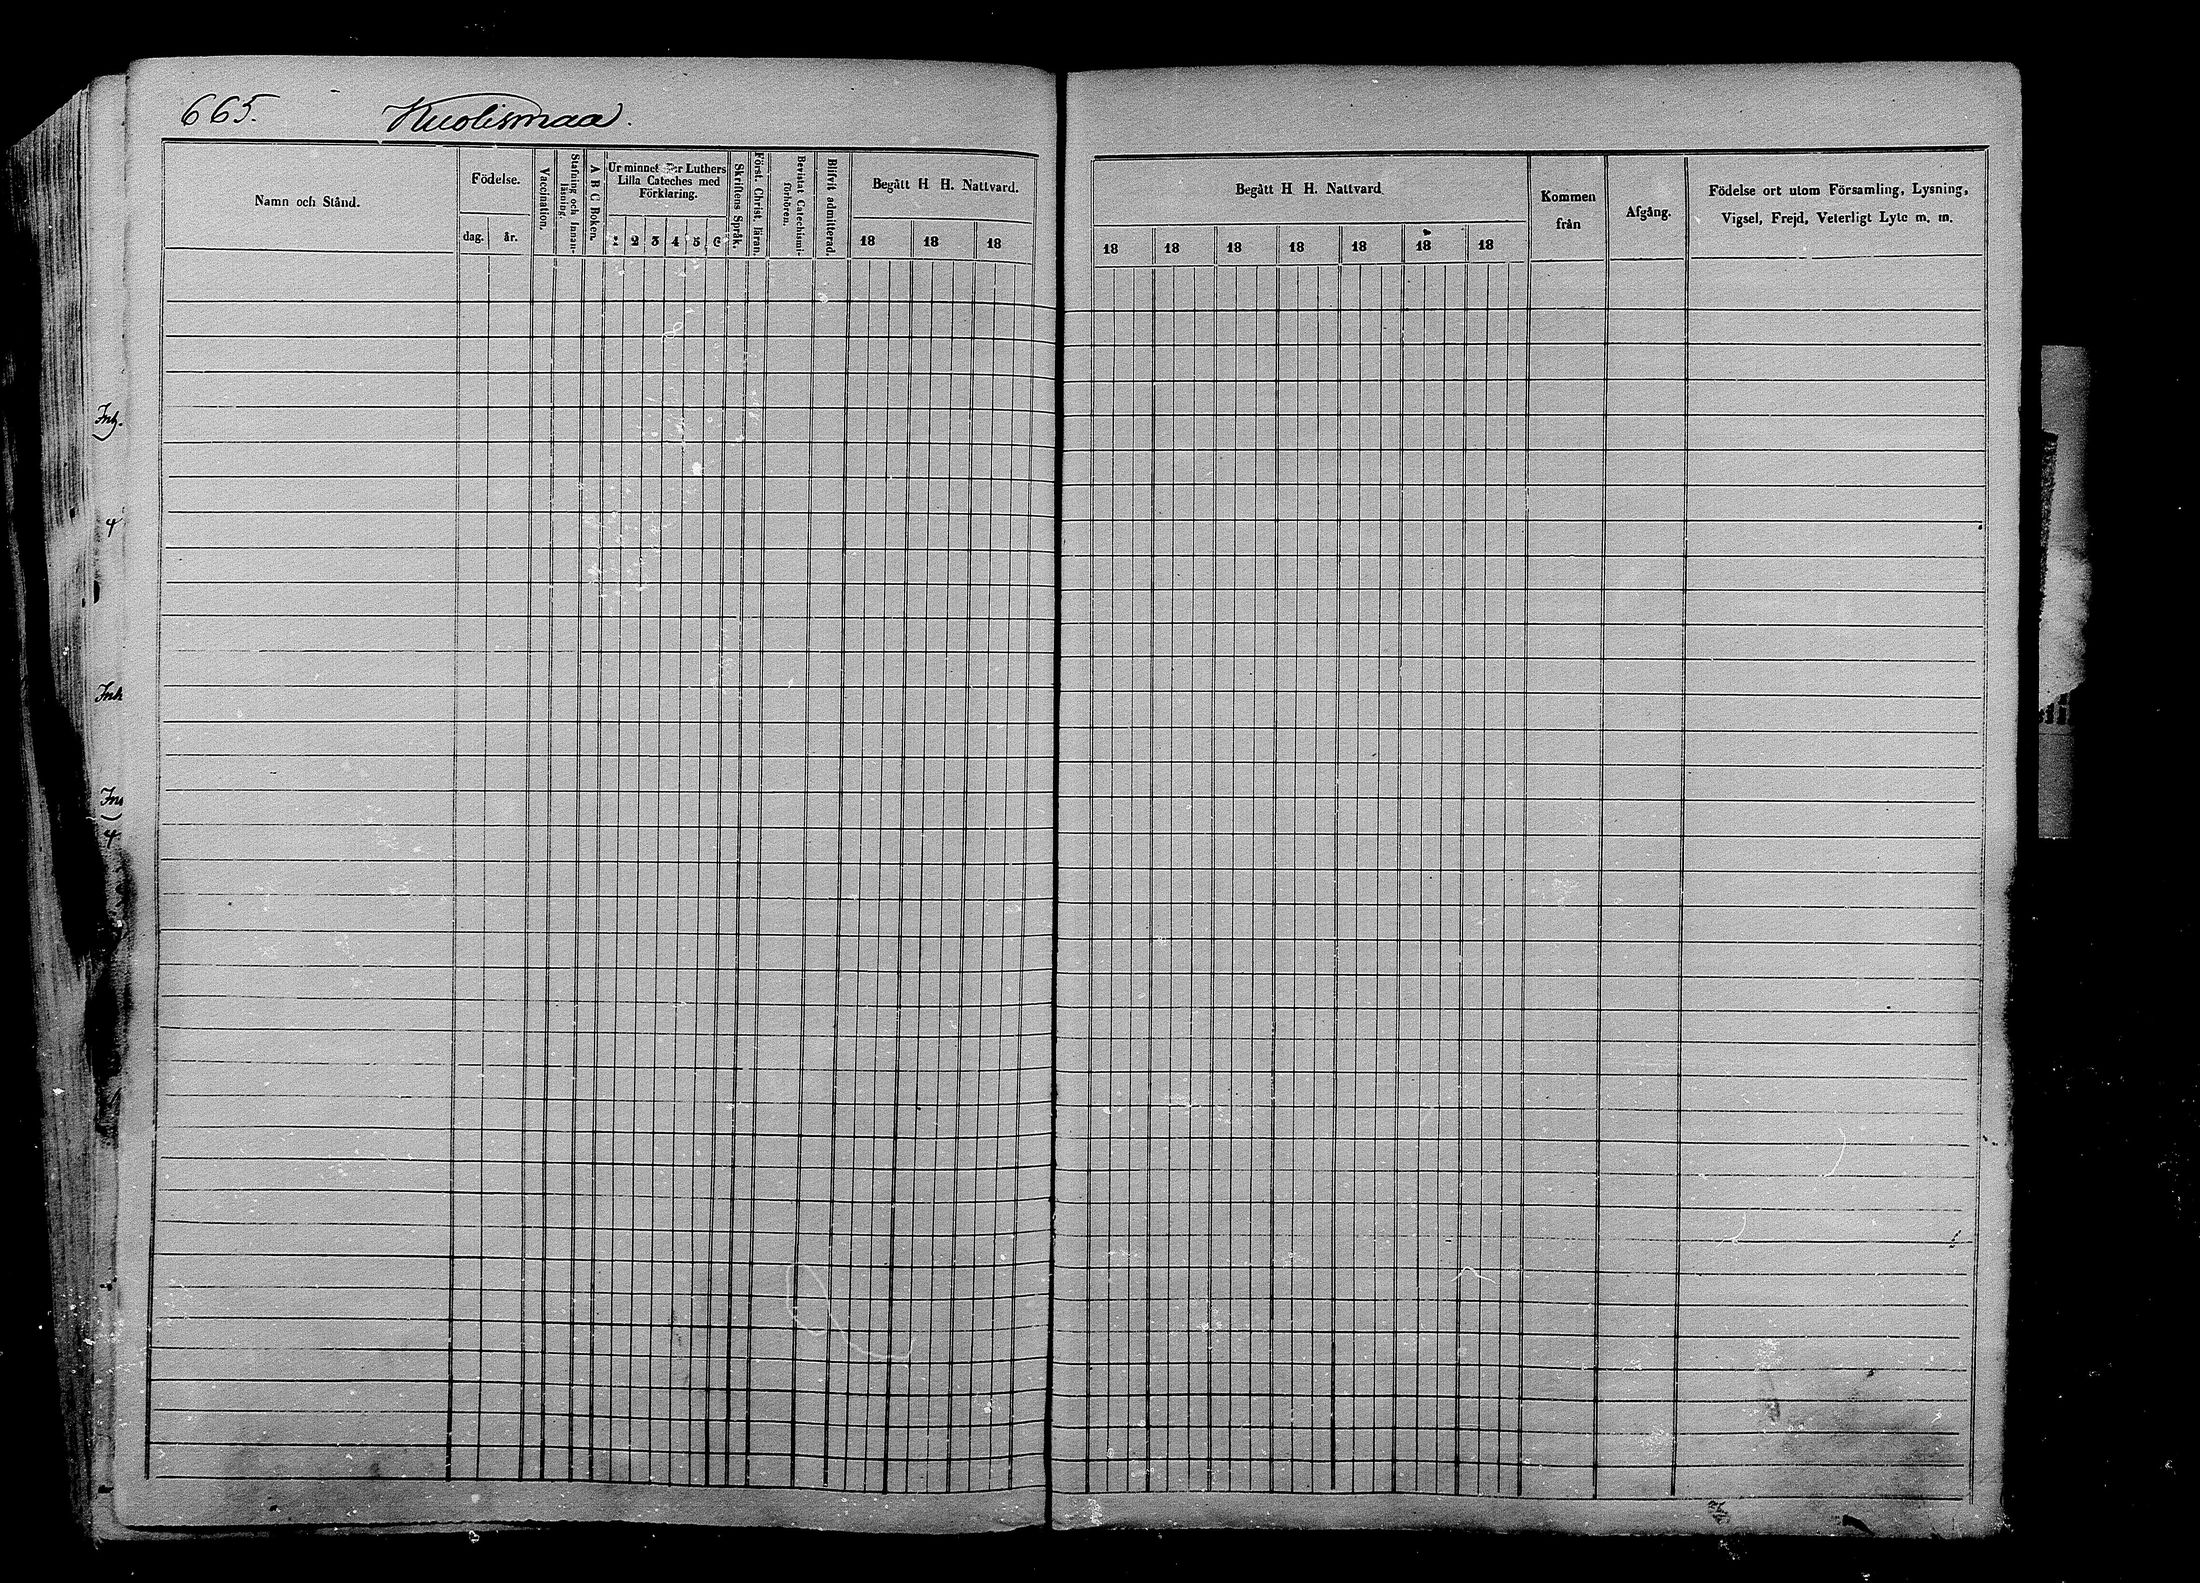 665. Kuolismaa.
Namn och Stånd.
Födelse.
dag. år.
Vaccination.
Stafning och innan-
läsning.
A B C Boken.
Ur minnet Dr Luthers
Lilla Cateches med
Förklaring.
1 2 3 4 5 6
Skriftens Språk.
Först. Christ. läran.
Bevistat Catechismi-
förhören.
Blifvit admitterad.
Begått H H. Nattvard.
18 18 18
Begått H H. Nattvard
18 18 18 18 18 18 18
Kommen
från
Afgång.
Födelse ort utom Församling, Lysning,
Vigsel, Frejd, Veterligt Lyte m. m.
Inh.
Inh